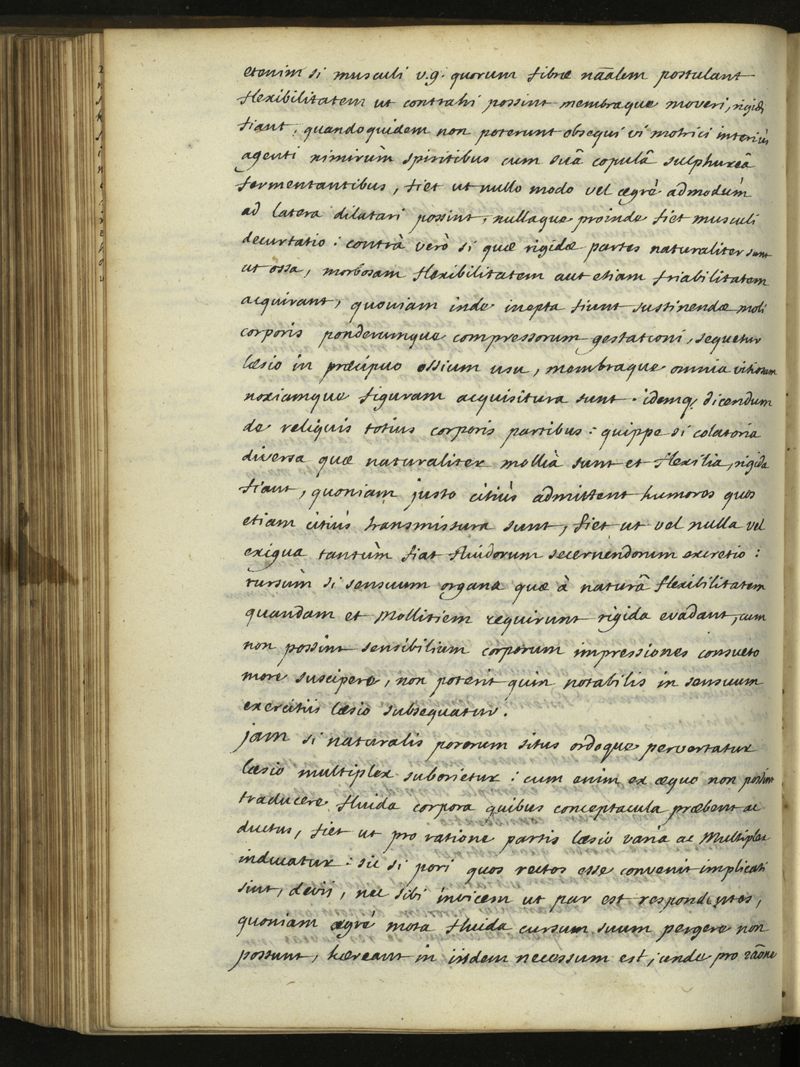 etenim si musculi v.g. quorum fibræ nãalem postulant
flexibilitatem ut contrahi possint membraque moveri, rigidi
fiant, quandoquidem non poterunt obsequi vi motrici interiùs
agenti nimirùm spiritibus cum suâ copulâ sulphureâ
fermentantibus, fiet ut nullo modo vel ægrè admodùm
ad latera dilatari possint, nullaque proinde fiet musculi
decurtatio : contrà verò si quæ rigidæ partes naturaliter sunt
ut ossa, morbosam flexibilitatem aut etiam friabilitatem
acquirant, quoniam inde inepta fiunt sustinendæ moli
corporis ponderumque compressorum gestationi, sequetur
læsio in præcipuo ossium usu, membraque omnia vitiosam
noxiamque figuram acquisitura sunt . idemq, dicendum
de reliquis totius corporis partibus : quippe si colatoria
diversa quæ naturaliter mollià sunt et flexilia, rigida
fiant, quoniam justo citiùs admittent humores quos
etiam citiùs transmissura sunt, fiet ut vel nulla vel
exigua tantùm fiat fluidorum secernendorum excretio :
rursùm si sensuum organa quæ à naturâ flexibilitatem
quandam et Mollitiem requirunt rigida evadant, cum
non possint sensibilium corporum impressiones consueto
more suscipere, non poterit quin notabilis in sensuum
exercitiis læsio subsequatur.
jam si naturalis pororum situs ordoque pervertatur
læsio multiplex suborietur : cum enim ex æquo non possint
traducere fluida corpora quibus conceptacula præbent ac
ductus, fiet ut pro ratione partis læsio varia ac Multiplex
inducatur : sic si pori quos rectos esse convenit implicati
sint, devii, nec sibi invicem ut par est respondentes,
quoniam ægré mota fluida cursum suum pergere non
possunt, hæreant in iisdem necessum est, unde pro rãone